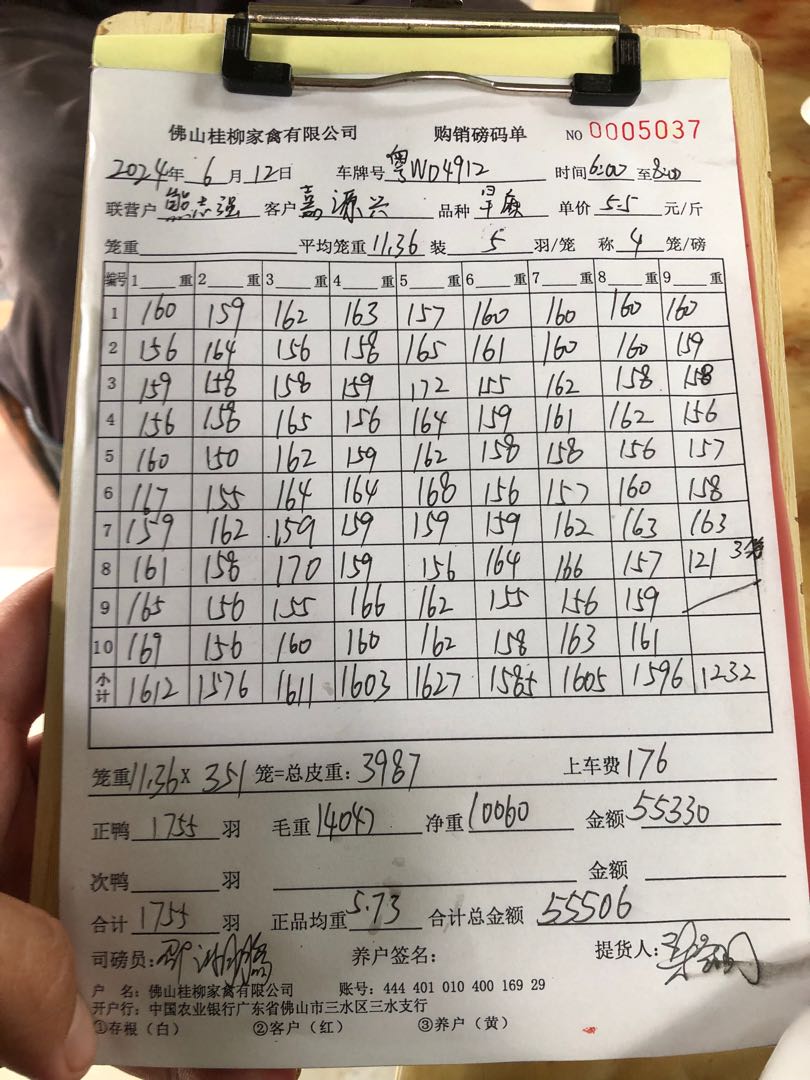 佛山桂柳家禽有限公司 购销磅码单 NO 0005037
2024年 6月 12日 车牌号 粤WD4912 时间 6:00 至 8:00
联营户 熊志强 客户 嘉源兴 品种 单价 5.5 元/斤
笼重 平均笼重 11.36 装 5 羽/笼 称 4 笼/磅
编号 1 重 2 重 3 重 4 重 5 重 6 重 7 重 8 重 9 重
1 160 159 162 163 157 160 160 160 160
2 156 164 156 158 165 161 160 160 159
3 159 158 158 159 172 155 162 158 158
4 156 158 165 156 164 159 161 162 156
5 160 150 162 159 162 158 158 156 157
6 167 155 164 164 168 156 157 160 158
7 159 162 159 159 159 159 162 163 163
8 161 158 170 159 156 164 166 157 121 3笼
9 165 156 155 166 162 155 156 159
10 169 156 160 160 162 158 163 161
小计 1612 1576 1611 1603 1627 1585 1605 1596 1232
笼重 11.36 X 351 笼=总皮重: 3987 上车费 176
正鸭 1755 羽 毛重 14047 净重 10060 金额 55330
次鸭 羽 金额
合计 1755 羽 正品均重 5.73 合计总金额 55506
司磅员: 养户签名: 提货人:
户 名: 佛山桂柳家禽有限公司 账号: 444 401 010 400 169 29
开户行: 中国农业银行广东省佛山市三水区三水支行
①存根（白） ②客户（红） ③养户（黄）